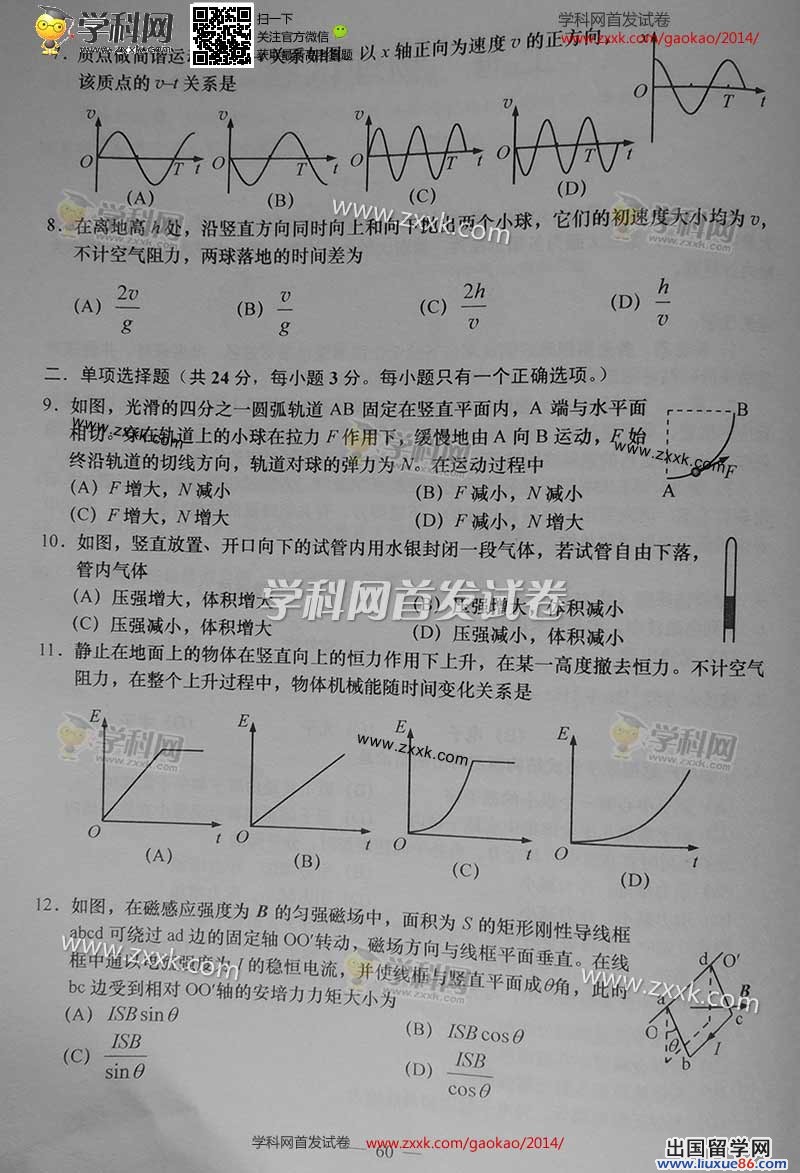 学科网
zxxk.com
扫一下
关注官方微信
学科网首发试卷
www.zxxk.com/gaokao/2014/
7. 质点做简谐运 关系如图 以 x 轴正向为速度 v 的正方向
该质点的 v-t 关系是
x
O T t
v v v v
O T t O T t O T t O T t
(A) (B) (C) (D)
学科网 www.zxxk.com 学科网
8. 在离地高 h 处，沿竖直方向同时向上和向 两个小球，它们的初速度大小均为 v，
不计空气阻力，两球落地的时间差为
(A) 2v/g (B) v/g (C) 2h/v (D) h/v
二．单项选择题（共 24 分，每小题 3 分。每小题只有一个正确选项。）
9. 如图，光滑的四分之一圆弧轨道 AB 固定在竖直平面内，A 端与水平面
相切。穿在轨道上的小球在拉力 F 作用下，缓慢地由 A 向 B 运动，F 始
终沿轨道的切线方向，轨道对球的弹力为 N。在运动过程中
(A) F 增大，N 减小 (B) F 减小，N 减小
(C) F 增大，N 增大 (D) F 减小，N 增大
B
F
A
www.zxxk.com
www.zxxk.com
10. 如图，竖直放置、开口向下的试管内用水银封闭一段气体，若试管自由下落，
管内气体
(A) 压强增大，体积增大 (B) 压强增大，体积减小
(C) 压强减小，体积增大 (D) 压强减小，体积减小
学科网首发试卷
11. 静止在地面上的物体在竖直向上的恒力作用下上升，在某一高度撤去恒力。不计空气
阻力，在整个上升过程中，物体机械能随时间变化关系是
E E E E
O t O t O t O t
(A) (B) (C) (D)
学科网 www.zxxk.com 学科网
12. 如图，在磁感应强度为 B 的匀强磁场中，面积为 S 的矩形刚性导线框
abcd 可绕过 ad 边的固定轴 OO′转动，磁场方向与线框平面垂直。在线
框中通以电流强度为 I 的稳恒电流，并使线框与竖直平面成 θ 角，此时
bc 边受到相对 OO′轴的安培力力矩大小为
(A) ISB sin θ (B) ISB cos θ
(C) ISB/sin θ (D) ISB/cos θ
d O′
a B
c
O
θ I
b
www.zxxk.com
学科网
学科网首发试卷 www.zxxk.com/gaokao/2014/
— 60 —
出国留学网
www.liuxue86.com